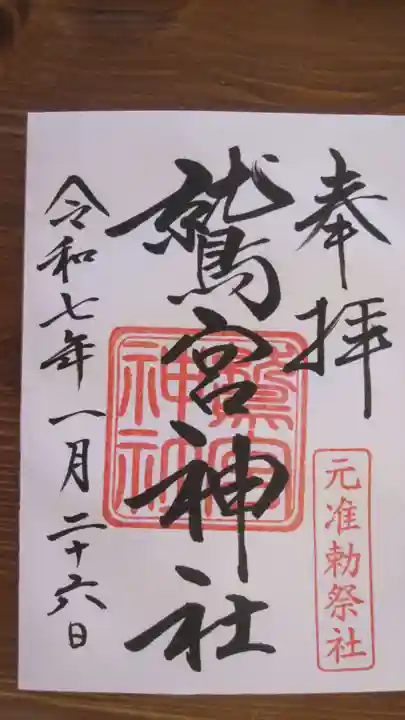 奉拝
元准勅祭社
鷲宮神社
鷲宮
神社
令和七年一月二十六日